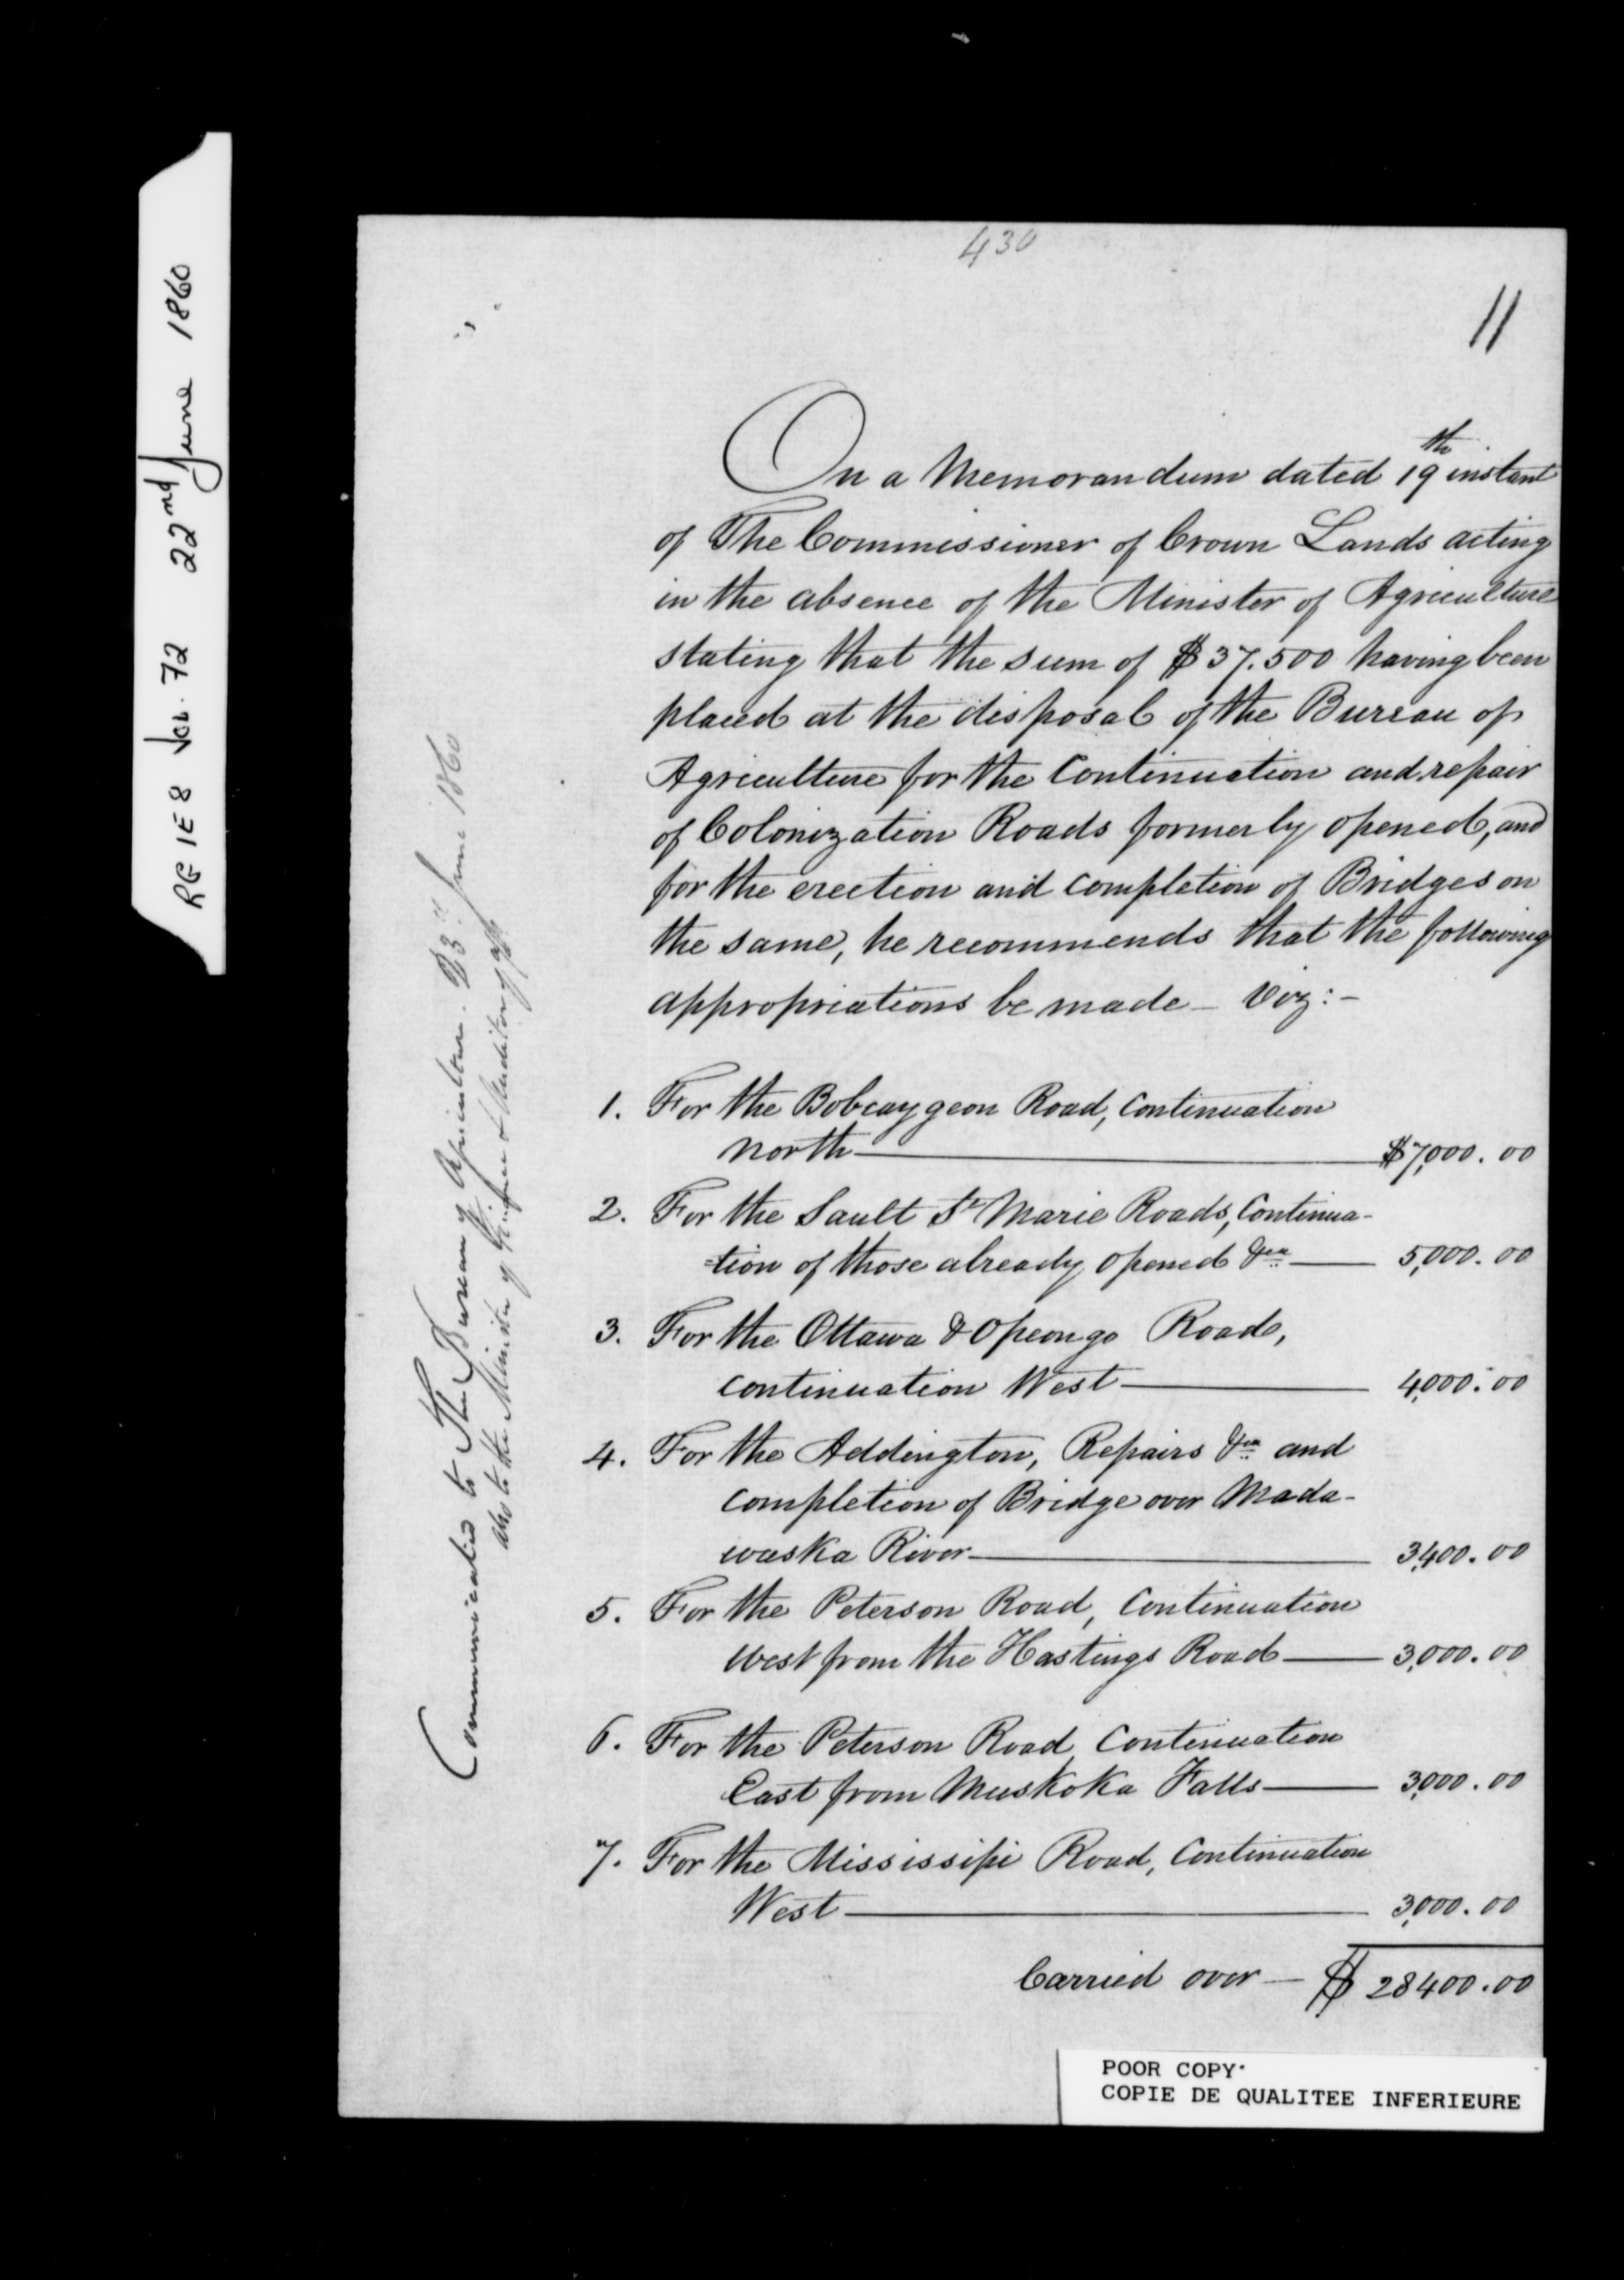 RG 1 E 8 Vol. 72 22nd June 1860
430
11
On a Memorandum dated 19th instant
of The Commissioner of Crown Lands acting
in the absence of the Minister of Agriculture
stating that the sum of $37.500 having been
placed at the disposal of the Bureau of
Agriculture for the Continuation and repair
of Colonization Roads formerly opened, and
for the erection and completion of Bridges on
the same, he recommends that the following
appropriations be made – Viz:–
1. For the Bobcaygeon Road, Continuation
North $7,000.00
2. For the Sault St Marie Roads, Continua-
-tion of those already opened &ca 5,000.00
3. For the Ottawa & Opeongo Road,
continuation West 4,000.00
4. For the Addington, Repairs &ca and
completion of Bridge over Mada-
waska River 3,400.00
5. For the Peterson Road, Continuation
West from the Hastings Road 3,000.00
6. For the Peterson Road Continuation
East from Muskoka Falls 3,000.00
7. For the Mississipi Road, Continuation
West 3,000.00
Carried over — $28400.00
Communicated to The Bureau of Agriculture. 23rd June 1860
also to the Minister of Finance & Auditor
POOR COPY
COPIE DE QUALITEE INFERIEURE